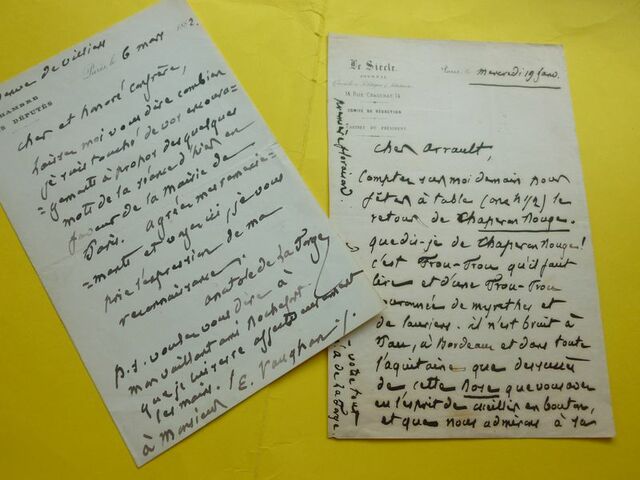 avenue de Villiers
CHAMBRE
DES DÉPUTÉS
Paris, le 6 mars 1882.
Cher et honoré confrère,
Laissez-moi vous dire combien
je suis touché de vos encoura-
=gements à propos des quelques
mots de la séance d'hier en
faveur de la Mairie de
Paris. Agréez mes remercie-
=ments et voyez ici, je vous
prie l'expression de ma
reconnaissance.
Anatole de La Forge
P.S. voulez-vous dire à
mon vaillant ami Rochefort
que je lui serre affectueusement
les mains.
à Monsieur E. Vaughan
Le Siècle
JOURNAL
14, RUE CHAUCHAT, 14
COMITÉ DE RÉDACTION
CABINET DU PRÉSIDENT
Paris, le Mercredi 19 Janv.
Cher Arrault,
Comptez sur moi demain pour
fêter à table (onze h 1/2) le
retour de Chaperon Rouge.
que dis-je de Chaperon Rouge!
c'est Frou-Frou qu'il faut
lire et d'une Frou-Frou
couronnée de myrthes et
de lauriers. il n'est bruit à
Pau, à Bordeaux et dans toute
l'aquitaine que des succès
de cette Rose que vous avez
eu l'esprit de cueillir en bouton,
et que nous admirons à sa
première floraison.
votre tout
A de la Forge